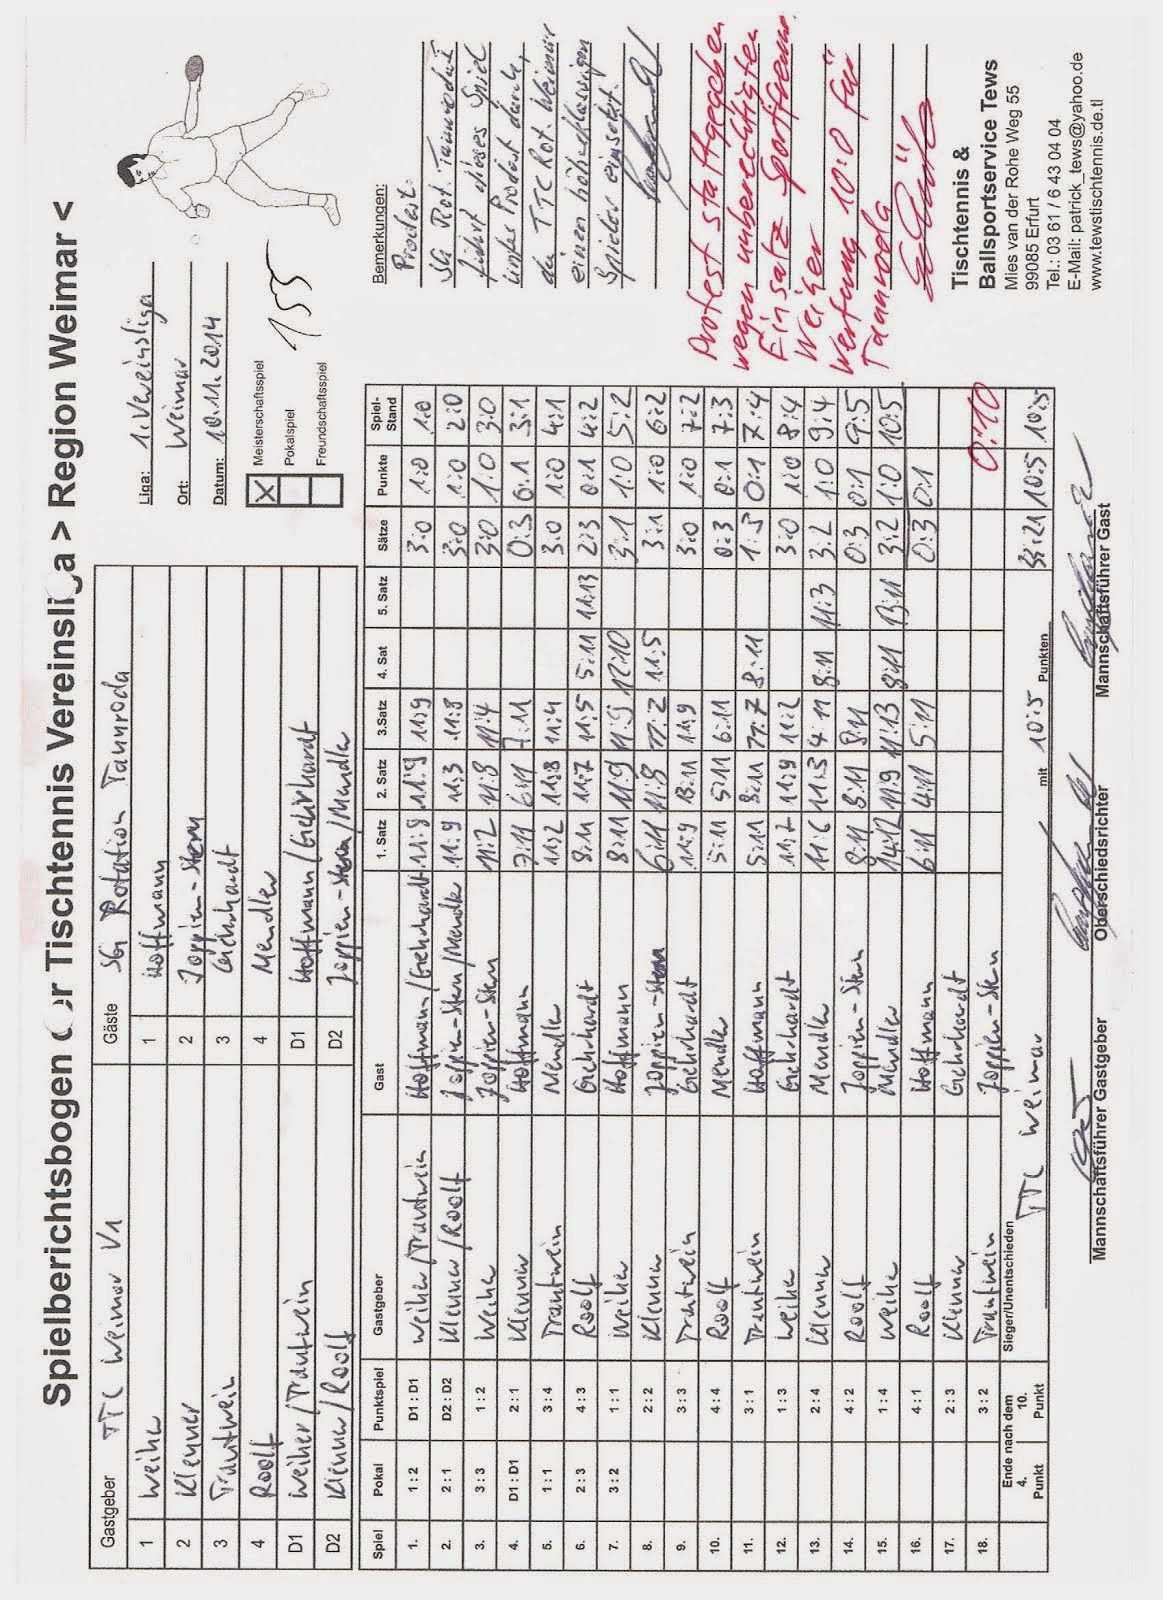 Spielberichtsbogen der Tischtennis Vereinsliga > Region Weimar <
Gastgeber TTC Weimar V1
1 Weiher
2 Klenner
3 Trautwein
4 Rodlf
D1 Weiher/Trautwein
D2 Klenner/Roolf
Gäste SG Rotation Tannroda
1 Hoffmann
2 Joppien-Stern
3 Gerhardt
4 Mendler
D1 Hoffmann/Gerhardt
D2 Joppien-Stern/Mendler
Liga: 1. Vereinsliga
Ort: Weimar
Datum: 10.11.2014
X Meisterschaftsspiel
Pokalspiel
Freundschaftsspiel
155
Spiel Pokal Punktspiel Gastgeber Gast 1. Satz 2. Satz 3.Satz 4. Sat 5. Satz Sätze Punkte Spiel-Stand
1. 1 : 2 D1 : D1 Weiher/Trautwein Hoffmann/Gerhardt 11:8 11:9 11:9 3:0 1:0 1:0
2. 2 : 1 D2 : D2 Klenner/Roolf Joppien-Stern/Mendler 11:9 11:3 11:8 3:0 1:0 2:0
3. 3 : 3 1 : 2 Weiher Joppien-Stern 11:2 11:8 11:4 3:0 1:0 3:0
4. D1 : D1 2 : 1 Klenner Hoffmann 7:11 6:11 7:11 0:3 0:1 3:1
5. 1 : 1 3 : 4 Trautwein Mendler 11:2 11:8 11:4 3:0 1:0 4:1
6. 2 : 3 4 : 3 Roolf Gerhardt 8:11 11:7 11:5 5:11 11:13 2:3 0:1 4:2
7. 3 : 2 1 : 1 Weiher Hoffmann 8:11 11:9 11:9 12:10 3:1 1:0 5:2
8. 2 : 2 Klenner Joppien-Stern 6:11 11:8 11:2 11:5 3:1 1:0 6:2
9. 3 : 3 Trautwein Gerhardt 11:9 13:11 11:9 3:0 1:0 7:2
10. 4 : 4 Roolf Mendler 5:11 5:11 6:11 0:3 0:1 7:3
11. 3 : 1 Trautwein Hoffmann 5:11 8:11 11:7 8:11 1:3 0:1 7:4
12. 1 : 3 Weiher Gerhardt 11:7 11:9 11:2 3:0 1:0 8:4
13. 2 : 4 Klenner Mendler 11:6 11:3 4:11 8:11 11:3 3:2 1:0 9:4
14. 4 : 2 Roolf Joppien-Stern 8:11 8:11 8:11 0:3 0:1 9:5
15. 1 : 4 Weiher Mendler 14:12 11:9 11:13 8:11 13:11 3:2 1:0 10:5
16. 4 : 1 Roolf Hoffmann 6:11 4:11 5:11 0:3 0:1
17. 2 : 3 Klenner Gerhardt
18. 3 : 2 Trautwein Joppien-Stern 0:10
Ende nach dem
4. Punkt 10. Punkt
Sieger/Unentschieden TTC Weimar mit 10:5 Punkten 10:5 10:5
Mannschaftsführer Gastgeber
Oberschiedsrichter
Mannschaftsführer Gast
Bemerkungen:
Prodest:
SG Rot. Tannroda
führt dieses Spiel
unter Prodest durch,
da TTC Rot. Weimar
einen höherklassigen
Spieler einsetzt.
Protest stattgegeben
wegen unberechtigten
Einsatz Sportfreund
Weiher
Wertung 10:0 für
Tannroda
Tischtennis &
Ballsportservice Tews
Mies van der Rohe Weg 55
99085 Erfurt
Tel.: 03 61 / 6 43 04 04
E-Mail: patrick_tews@yahoo.de
www.tewstischtennis.de.tl